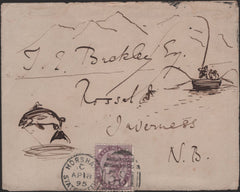 T. E. Brokley Esq.
Rossal
Inverness
N.B.
HORSHAM
C
AP 18
95